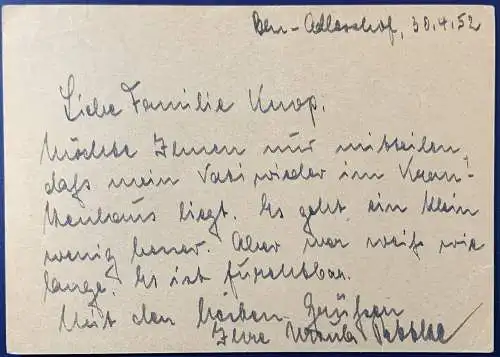 Bln-Adlershof, 30.4.52
Liebe Familie Knop.
Möchte Ihnen nur mitteilen,
daß mein Vati wieder im Kran-
kenhaus liegt. Es geht ein klein
wenig besser. Aber wer weiß wie
lange. Es ist furchtbar.
Mit den besten Grüßen
Ihre Ursula